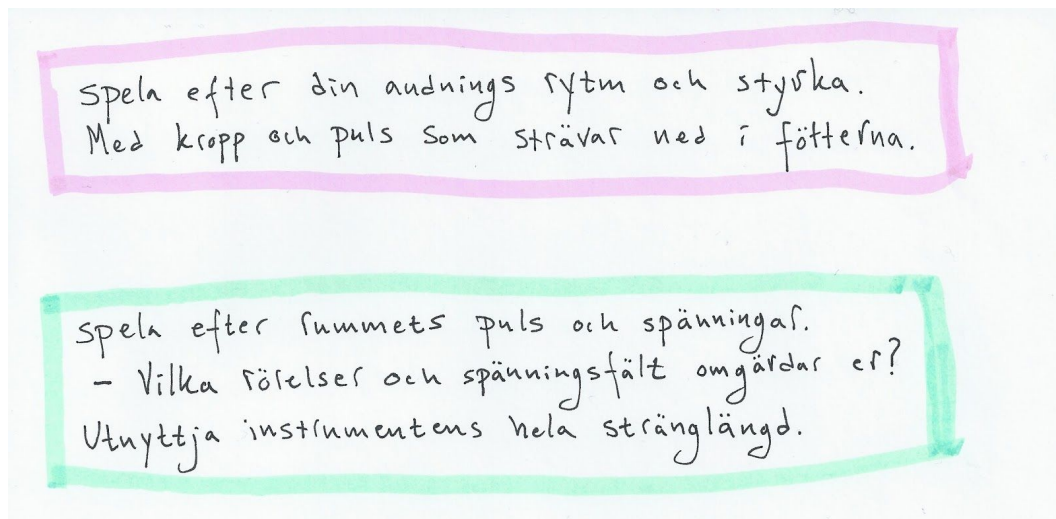 Spela efter din andnings rytm och styrka.
Med kropp och puls som strävar ned i fötterna.
Spela efter rummets puls och spänningar.
- Vilka rörelser och spänningsfält omgärdar er?
Utnyttja instrumentens hela stränglängd.